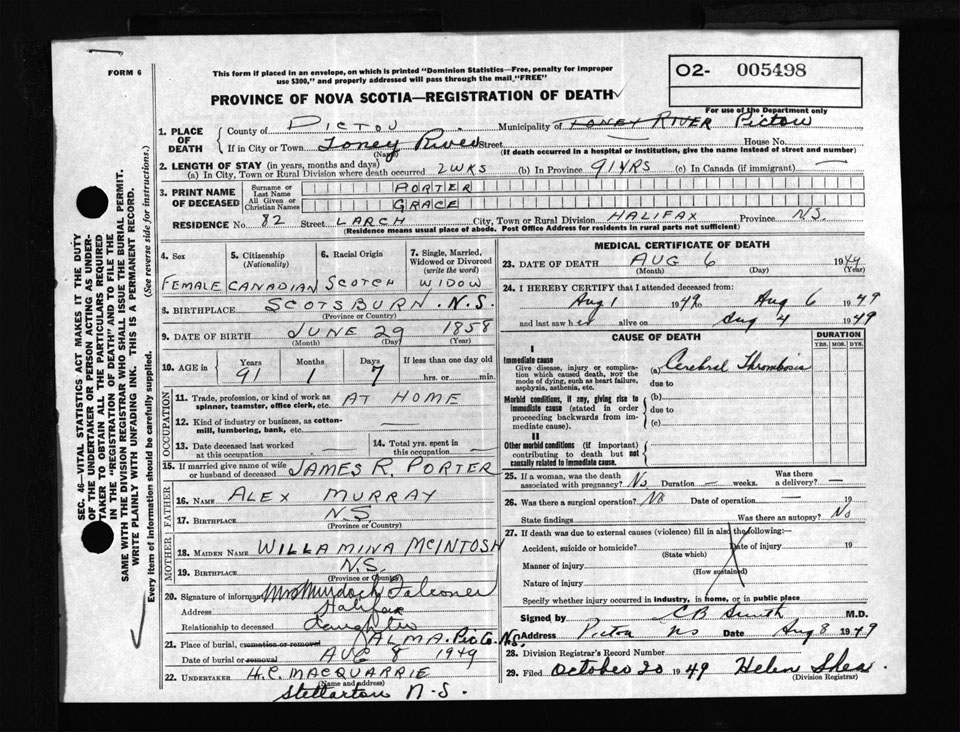 FORM 6
This form if placed in an envelope, on which is printed "Dominion Statistics—Free, penalty for improper
use $300," and properly addressed will pass through the mail "FREE"
O2- 005498
For use of the Department only
PROVINCE OF NOVA SCOTIA—REGISTRATION OF DEATH
1. PLACE OF DEATH
County of PICTOU Municipality of TONEY RIVER Pictou
If in City or Town Toney River Street House No.
(Name) (If death occurred in a hospital or institution, give the name instead of street and number)
2. LENGTH OF STAY (in years, months and days)
(a) In City, Town or Rural Division where death occurred 2 WKS (b) In Province 91 YRS (c) In Canada (if immigrant) —
3. PRINT NAME OF DECEASED
Surname or Last Name PORTER
All Given or Christian Names GRACE
RESIDENCE No. 82 Street LARCH City, Town or Rural Division HALIFAX Province N.S.
(Residence means usual place of abode. Post Office Address for residents in rural parts not sufficient)
4. Sex 5. Citizenship (Nationality) 6. Racial Origin 7. Single, Married, Widowed or Divorced (write the word)
FEMALE CANADIAN SCOTCH WIDOW
8. BIRTHPLACE SCOTSBURN. N.S.
(Province or Country)
9. DATE OF BIRTH JUNE 29 1858
(Month) (Day) (Year)
10. AGE in Years Months Days If less than one day old
91 1 7 hrs. or min.
OCCUPATION
11. Trade, profession, or kind of work as
spinner, teamster, office clerk, etc. AT HOME
12. Kind of industry or business, as cotton-
mill, lumbering, bank, etc. —
13. Date deceased last worked
at this occupation —
14. Total yrs. spent in
this occupation —
15. If married give name of wife
or husband of deceased JAMES R. PORTER
FATHER
16. NAME ALEX MURRAY
17. BIRTHPLACE N.S
(Province or Country)
MOTHER
18. MAIDEN NAME WILLAMINA MCINTOSH
19. BIRTHPLACE N.S.
(Province or Country)
20. Signature of informant Mrs Murdoch Falconer
Address Halifax
Relationship to deceased Daughter
21. Place of burial, cremation or removal ALMA. Pic Co. N.S.
Date of burial or removal AUG 8 1949
22. UNDERTAKER H.C. MACQUARRIE
(Name and Address)
Stellarton N.S.
MEDICAL CERTIFICATE OF DEATH
23. DATE OF DEATH AUG 6 1949
(Month) (Day) (Year)
24. I HEREBY CERTIFY that I attended deceased from:
Aug 1 1949 to Aug 6 1949
and last saw her alive on Aug 4 1949
CAUSE OF DEATH DURATION
YRS. MOS. DYS.
I
Immediate cause
Give disease, injury or complica-
tion which caused death, NOT the
mode of dying, such as heart failure,
asphyxia, asthenia, etc.
(a) Cerebral Thrombosis
due to
Morbid conditions, if any, giving rise to
immediate cause (stated in order
proceeding backwards from im-
mediate cause).
(b)
due to
(c)
II
Other morbid conditions (if important)
contributing to death but not
causally related to immediate cause.
25. If a woman, was the death
associated with pregnancy? No Duration — weeks. Was there a delivery? —
26. Was there a surgical operation? No Date of operation — 19
State findings Was there an autopsy? No
27. If death was due to external causes (violence) fill in also the following:—
Accident, suicide or homicide? Date of injury 19
(State which)
Manner of injury
(How sustained)
Nature of injury
Specify whether injury occurred in industry, in home, or in public place
Signed by CB Smith M.D.
Address Pictou NS Date Aug 8 1949
28. Division Registrar's Record Number
29. Filed October 20 1949 Helen Shea.
(Division Registrar)
SEC. 46—VITAL STATISTICS ACT MAKES IT THE DUTY
OF THE UNDERTAKER OR PERSON ACTING AS UNDER-
TAKER TO OBTAIN ALL THE PARTICULARS REQUIRED
IN THE "REGISTRATION OF DEATH" AND TO FILE THE
SAME WITH THE DIVISION REGISTRAR WHO SHALL ISSUE THE BURIAL PERMIT.
WRITE PLAINLY WITH UNFADING INK. THIS IS A PERMANENT RECORD.
Every item of information should be carefully supplied. (See reverse side for instructions.)